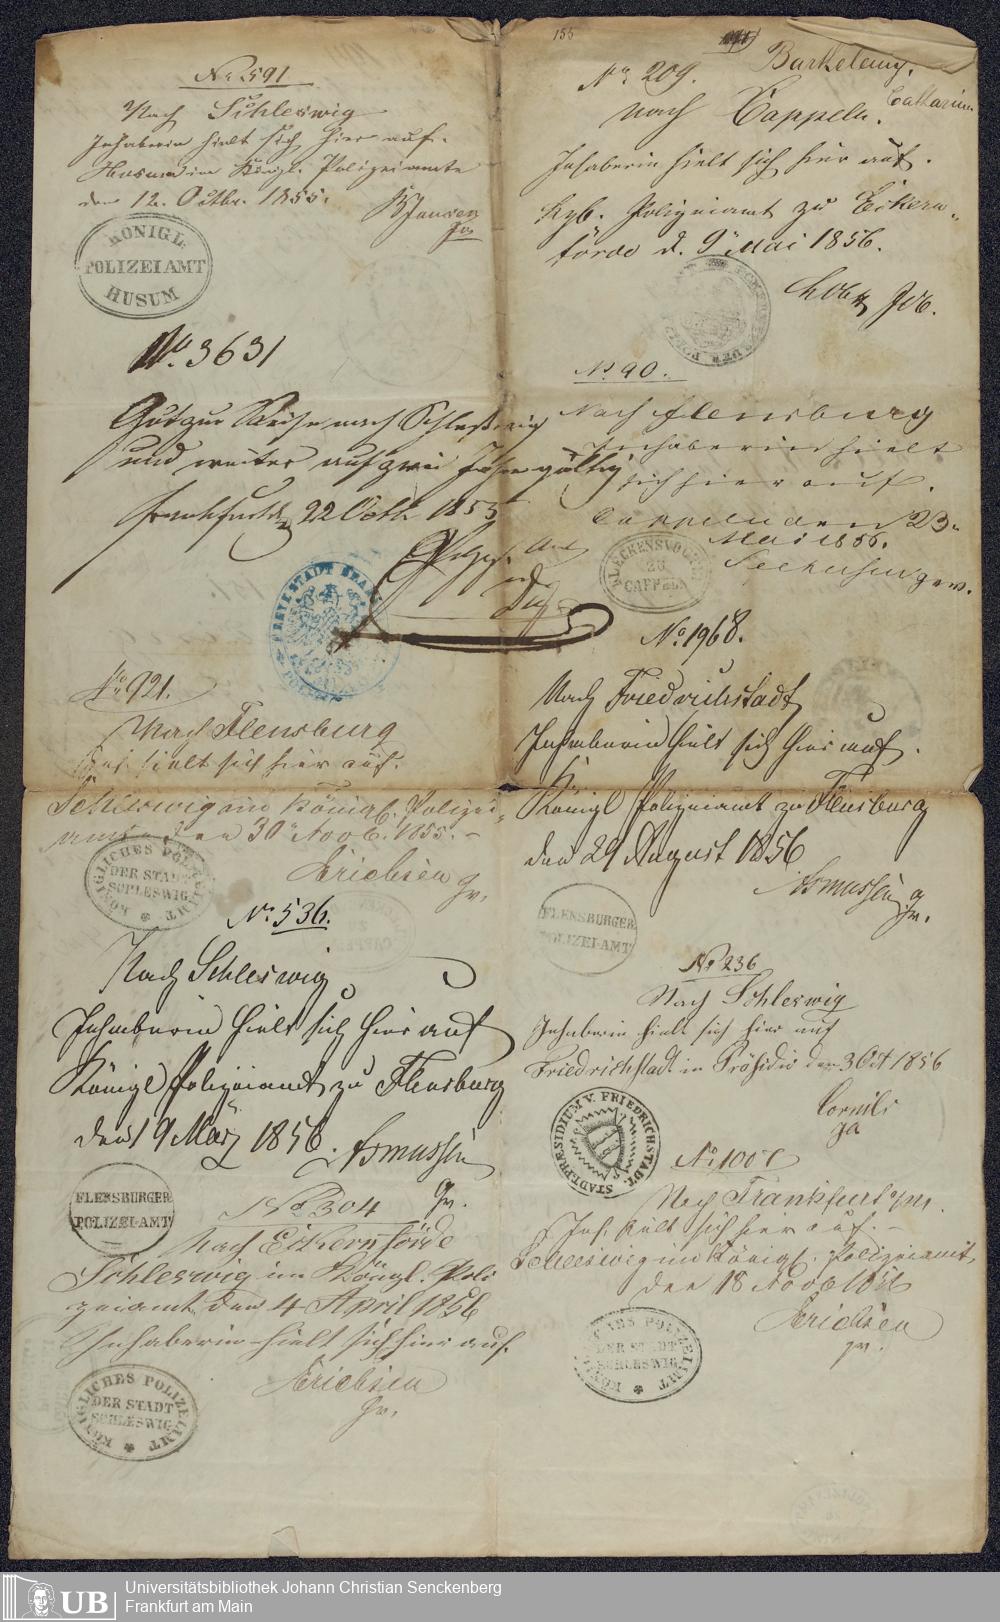 155
No 591
Nach Schleswig
Inhaberin hielt sich hier auf.
Husum im Königl. Polizeiamte
den 12. Octbr. 1855.
KÖNIGL.
POLIZEIAMT
HUSUM
No. 3631
Gut zur Reise nach Schleswig
und weiter auf zwei Jahre gültig
Frankfurt 22 Octb 1855
Polizei Amt
No 921.
Nach Flensburg
hielt sich hier auf.
Schleswig im Königl. Polizei-
amte den 30 Novb. 1855.
Erichsen
gv.
KÖNIGLICHES POLIZEIAMT
DER STADT
SCHLESWIG
No 536.
Nach Schleswig
Inhaberin hielt sich hier auf
Königl Polizeiamt zu Flensburg
den 19 März 1856.
Asmussen
gv.
FLENSBURGER
POLIZEI-AMT
No 304
Nach Eckernförde
Schleswig im Königl. Poli
zeiamte den 4 April 1856
Inhaberin hielt sich hier auf.
Erichsen
gv.
KÖNIGLICHES POLIZEIAMT
DER STADT
SCHLESWIG
Barthelemy,
Catharine
No 209.
nach Cappeln.
Inhaberin hielt sich hier auf.
Kgl. Polizeiamt zu Eckern-
förde d. 9 Mai 1856.
No. 90.
Nach Flensburg
Inhaberin hielt
sich hier auf.
Cappeln den 23.
Mai 1856.
FLECKENSVOGTEI
ZU
CAPPELN
No 1968.
Nach Friedrichstadt
Inhaberin hielt sich hier auf.
Königl Polizeiamt zu Flensburg
den 29 August 1856
Asmussen
gv.
FLENSBURGER
POLIZEI-AMT
No 236
Nach Schleswig
Inhaberin hielt sich hier auf
Friedrichstadt in Präsidio den 3 Oct 1856
Cornils
STADT-PRÆSIDIUM V. FRIEDRICHSTADT.
Nach Frankfurt a/m.
Inh. hielt sich hier auf.
Schleswig im Königl. Polizeiamte,
den 18 Novb 1856
Erichsen
gv.
KÖNIGLICHES POLIZEIAMT
DER STADT
SCHLESWIG
UB
Universitätsbibliothek Johann Christian Senckenberg
Frankfurt am Main